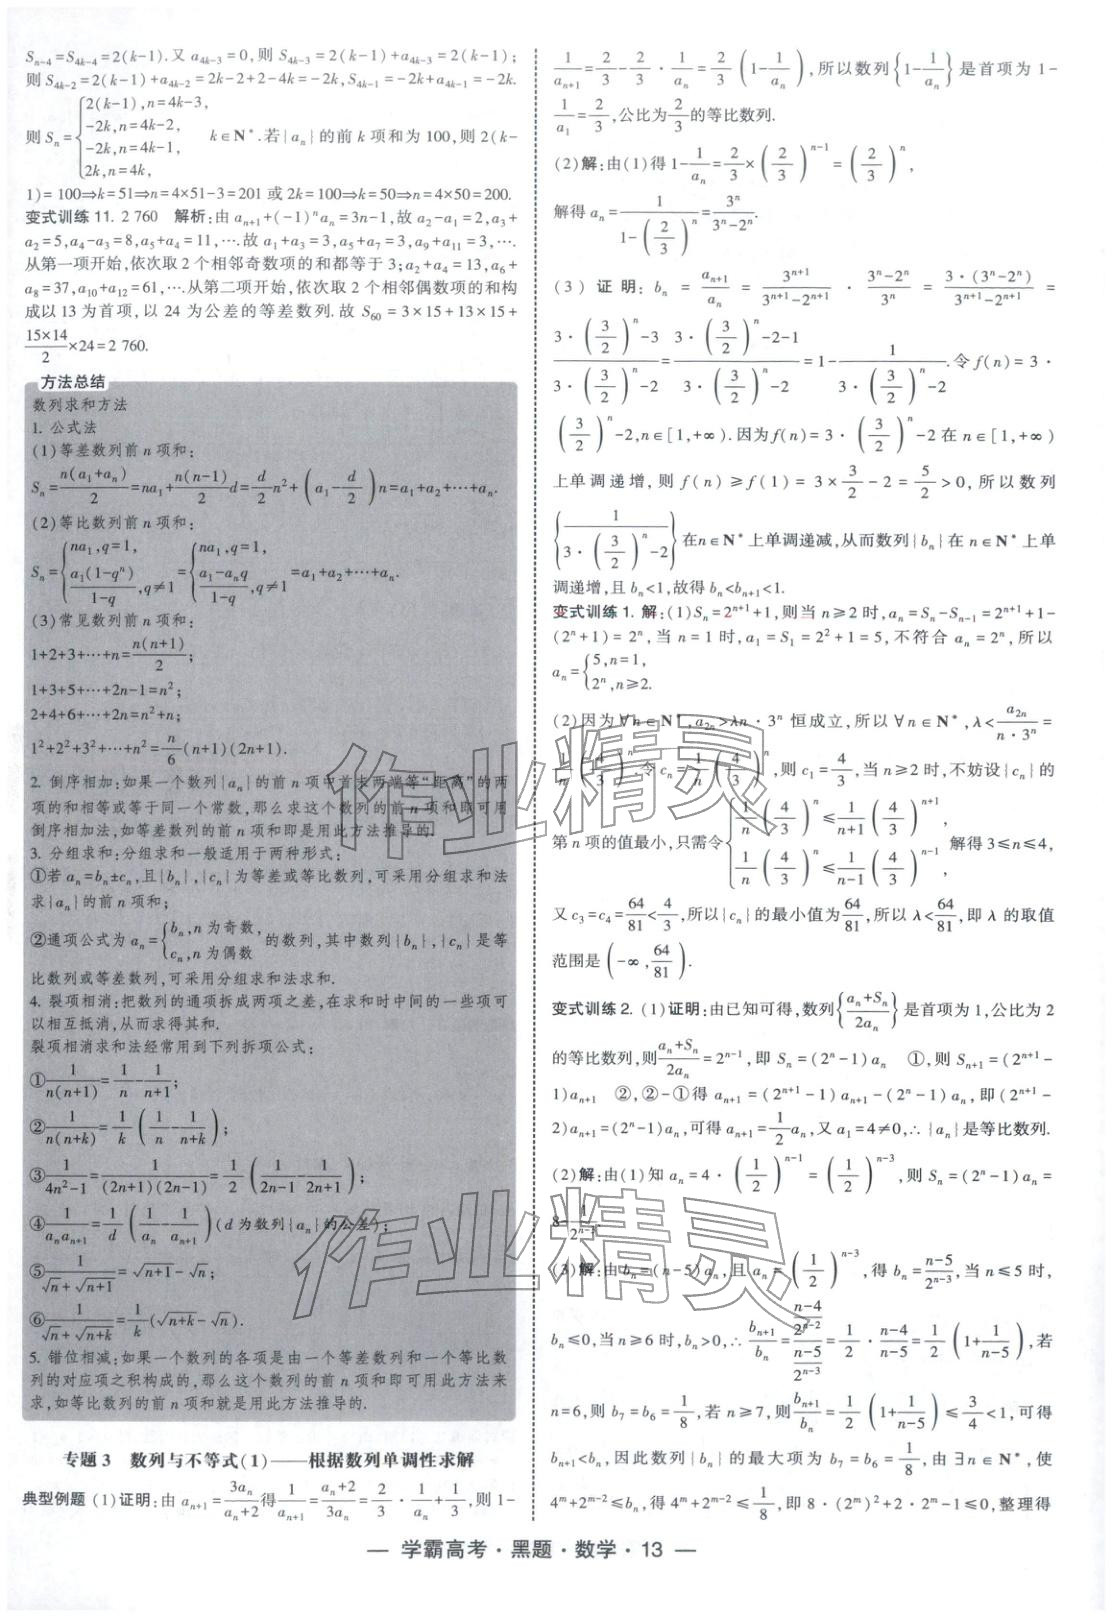 S_{n-4}=S_{4k-4}=2(k-1).又 a_{4k-3}=0,则 S_{4k-3}=2(k-1)+a_{4k-3}=2(k-1);
则 S_{4k-2}=2(k-1)+a_{4k-2}=2k-2+2-4k=-2k,S_{4k-1}=-2k+a_{4k-1}=-2k.
则 S_n={2(k-1),n=4k-3, -2k,n=4k-2, -2k,n=4k-1, 2k,n=4k, k∈N*.若{a_n}的前 k 项和为 100,则 2(k-
1)=100⇒k=51⇒n=4×51-3=201 或 2k=100⇒k=50⇒n=4×50=200.
变式训练 11. 2 760 解析:由 a_{n+1}+(-1)^n a_n=3n-1,故 a_2-a_1=2,a_3+
a_2=5,a_4-a_3=8,a_5+a_4=11,….故 a_1+a_3=3,a_5+a_7=3,a_9+a_{11}=3,….
从第一项开始,依次取 2 个相邻奇数项的和都等于 3;a_2+a_4=13,a_6+
a_8=37,a_{10}+a_{12}=61,….从第二项开始,依次取 2 个相邻偶数项的和构
成以 13 为首项,以 24 为公差的等差数列.故 S_{60}=3×15+13×15+
15×14/2×24=2 760.
方法总结
数列求和方法
1. 公式法
(1)等差数列前 n 项和:
S_n=n(a_1+a_n)/2=na_1+n(n-1)/2 d=d/2 n²+(a_1-d/2)n=a_1+a_2+…+a_n.
(2)等比数列前 n 项和:
S_n={na_1,q=1, a_1(1-q^n)/(1-q),q≠1={na_1,q=1, (a_1-a_nq)/(1-q),q≠1=a_1+a_2+…+a_n.
(3)常见数列前 n 项和:
1+2+3+…+n=n(n+1)/2;
1+3+5+…+2n-1=n²;
2+4+6+…+2n=n²+n;
1²+2²+3²+…+n²=n/6(n+1)(2n+1).
2. 倒序相加:如果一个数列{a_n}的前 n 项中首末两端等“距离”的两
项的和相等或等于同一个常数,那么求这个数列的前 n 项和即可用
倒序相加法,如等差数列的前 n 项和即是用此方法推导的.
3. 分组求和:分组求和一般适用于两种形式:
①若 a_n=b_n±c_n,且{b_n},{c_n}为等差或等比数列,可采用分组求和法
求{a_n}的前 n 项和;
②通项公式为 a_n={b_n,n 为奇数, c_n,n 为偶数 的数列,其中数列{b_n},{c_n}是等
比数列或等差数列,可采用分组求和法求和.
4. 裂项相消:把数列的通项拆成两项之差,在求和时中间的一些项可
以相互抵消,从而求得其和.
裂项相消求和法经常用到下列拆项公式:
①1/(n(n+1))=1/n-1/(n+1);
②1/(n(n+k))=1/k(1/n-1/(n+k));
③1/(4n²-1)=1/((2n+1)(2n-1))=1/2(1/(2n-1)-1/(2n+1));
④1/(a_na_{n+1})=1/d(1/a_n-1/a_{n+1})(d 为数列{a_n}的公差);
⑤1/(√n+√(n+1))=√(n+1)-√n;
⑥1/(√n+√(n+k))=1/k(√(n+k)-√n).
5. 错位相减:如果一个数列的各项是由一个等差数列和一个等比数
列的对应项之积构成的,那么这个数列的前 n 项和即可用此方法来
求,如等比数列的前 n 项和就是用此方法推导的.
专题 3 数列与不等式(1)——根据数列单调性求解
典型例题 (1)证明:由 a_{n+1}=3a_n/(a_n+2)得1/a_{n+1}=(a_n+2)/(3a_n)=2/3·1/a_n+1/3,则 1-
1/a_{n+1}=2/3-2/3·1/a_n=2/3(1-1/a_n),所以数列{1-1/a_n}是首项为 1-
1/a_1=2/3,公比为2/3的等比数列.
(2)解:由(1)得 1-1/a_n=2/3×(2/3)^{n-1}=(2/3)^n,
解得 a_n=1/(1-(2/3)^n)=3^n/(3^n-2^n).
(3) 证明: b_n=a_{n+1}/a_n=3^{n+1}/(3^{n+1}-2^{n+1})·(3^n-2^n)/3^n=3·(3^n-2^n)/(3^{n+1}-2^{n+1})=
(3·(3/2)^n-3)/(3·(3/2)^n-2)=(3·(3/2)^n-2-1)/(3·(3/2)^n-2)=1-1/(3·(3/2)^n-2).令 f(n)=3·
(3/2)^n-2,n∈[1,+∞).因为 f(n)=3·(3/2)^n-2 在 n∈[1,+∞)
上单调递增,则 f(n)≥f(1)=3×3/2-2=5/2>0,所以数列
{1/(3·(3/2)^n-2)}在 n∈N* 上单调递减,从而数列{b_n}在 n∈N* 上单
调递增,且 b_n<1,故得 b_n<b_{n+1}<1.
变式训练 1. 解:(1)S_n=2^{n+1}+1,则当 n≥2 时,a_n=S_n-S_{n-1}=2^{n+1}+1-
(2^n+1)=2^n,当 n=1 时,a_1=S_1=2²+1=5,不符合 a_n=2^n,所以
a_n={5,n=1, 2^n,n≥2.
(2)因为∀n∈N*,a_{2n}>λn·3^n 恒成立,所以∀n∈N*,λ<a_{2n}/(n·3^n)=
1/n(4/3)^n,令 c_n=1/n(4/3)^n,则 c_1=4/3,当 n≥2 时,不妨设{c_n}的
第 n 项的值最小,只需令{1/n(4/3)^n≤1/(n+1)(4/3)^{n+1}, 1/n(4/3)^n≤1/(n-1)(4/3)^{n-1}, 解得 3≤n≤4,
又 c_3=c_4=64/81<4/3,所以{c_n}的最小值为64/81,所以 λ<64/81,即 λ 的取值
范围是(-∞,64/81).
变式训练 2. (1)证明:由已知可得,数列{(a_n+S_n)/(2a_n)}是首项为 1,公比为 2
的等比数列,则(a_n+S_n)/(2a_n)=2^{n-1},即 S_n=(2^n-1)a_n ①,则 S_{n+1}=(2^{n+1}-
1)a_{n+1} ②,②-①得 a_{n+1}=(2^{n+1}-1)a_{n+1}-(2^n-1)a_n,即(2^{n+1}-
2)a_{n+1}=(2^n-1)a_n,可得 a_{n+1}=1/2 a_n,又 a_1=4≠0,∴{a_n}是等比数列.
(2)解:由(1)知 a_n=4·(1/2)^{n-1}=(1/2)^{n-3},则 S_n=(2^n-1)a_n=
8-1/2^{n-3}.
(3)解:由 b_n=(n-5)a_n,且 a_n=(1/2)^{n-3},得 b_n=(n-5)/2^{n-3},当 n≤5 时,
b_n≤0,当 n≥6 时,b_n>0,∴b_{n+1}/b_n=((n-4)/2^{n-2})/((n-5)/2^{n-3})=1/2·(n-4)/(n-5)=1/2(1+1/(n-5)),若
n=6,则 b_7=b_6=1/8,若 n≥7,则b_{n+1}/b_n=1/2(1+1/(n-5))≤3/4<1,可得
b_{n+1}<b_n,因此数列{b_n}的最大项为 b_7=b_6=1/8,由∃n∈N*,使
4^m+2^{m-2}≤b_n,得 4^m+2^{m-2}≤1/8,即 8·(2^m)²+2·2^m-1≤0,整理得
— 学霸高考·黑题·数学·13 —
作业精灵
作业精灵